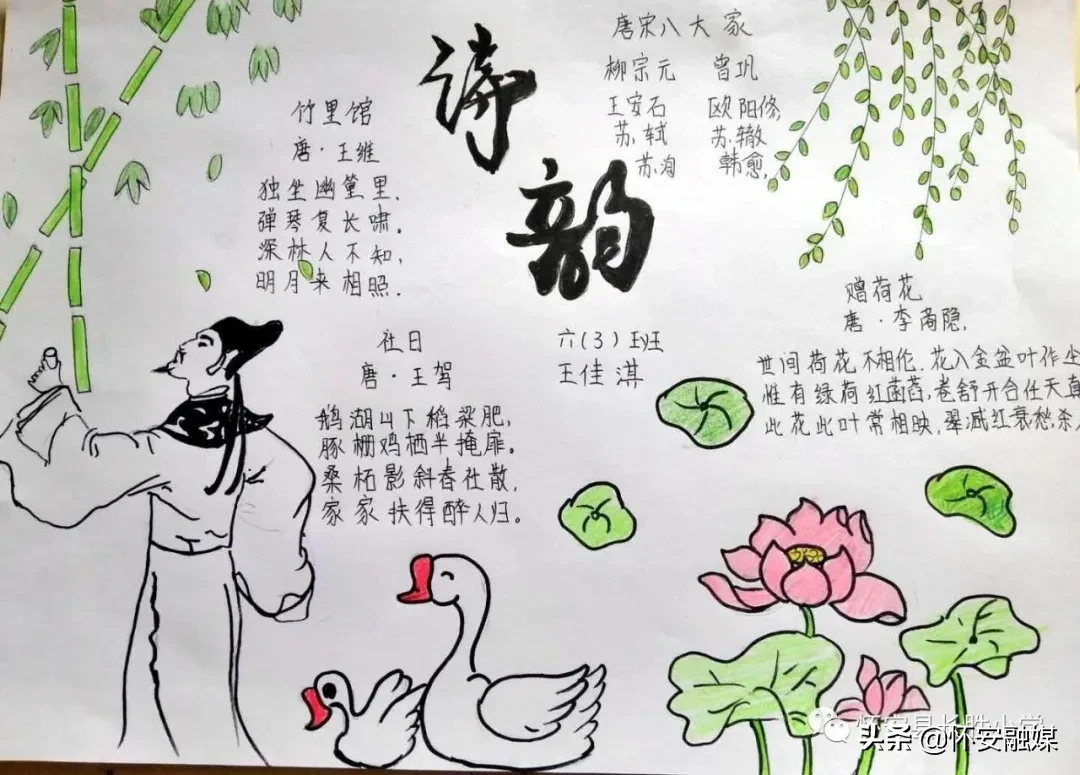 诗韵
唐宋八大家
柳宗元 曾巩
王安石 欧阳修,
苏轼 苏辙
苏洵 韩愈,
竹里馆
唐·王维
独坐幽篁里,
弹琴复长啸。
深林人不知,
明月来相照.
社日
唐·王驾
鹅湖山下稻粱肥,
豚栅鸡栖半掩扉。
桑柘影斜春社散,
家家扶得醉人归。
六(3)班
王佳淇
赠荷花
唐·李商隐,
世间荷花不相伦.花入金盆叶作
惟有绿荷红菡萏,卷舒开合任天真
此花此叶常相映,翠减红衰愁杀
怀安县长胜小学
头条@怀安融媒